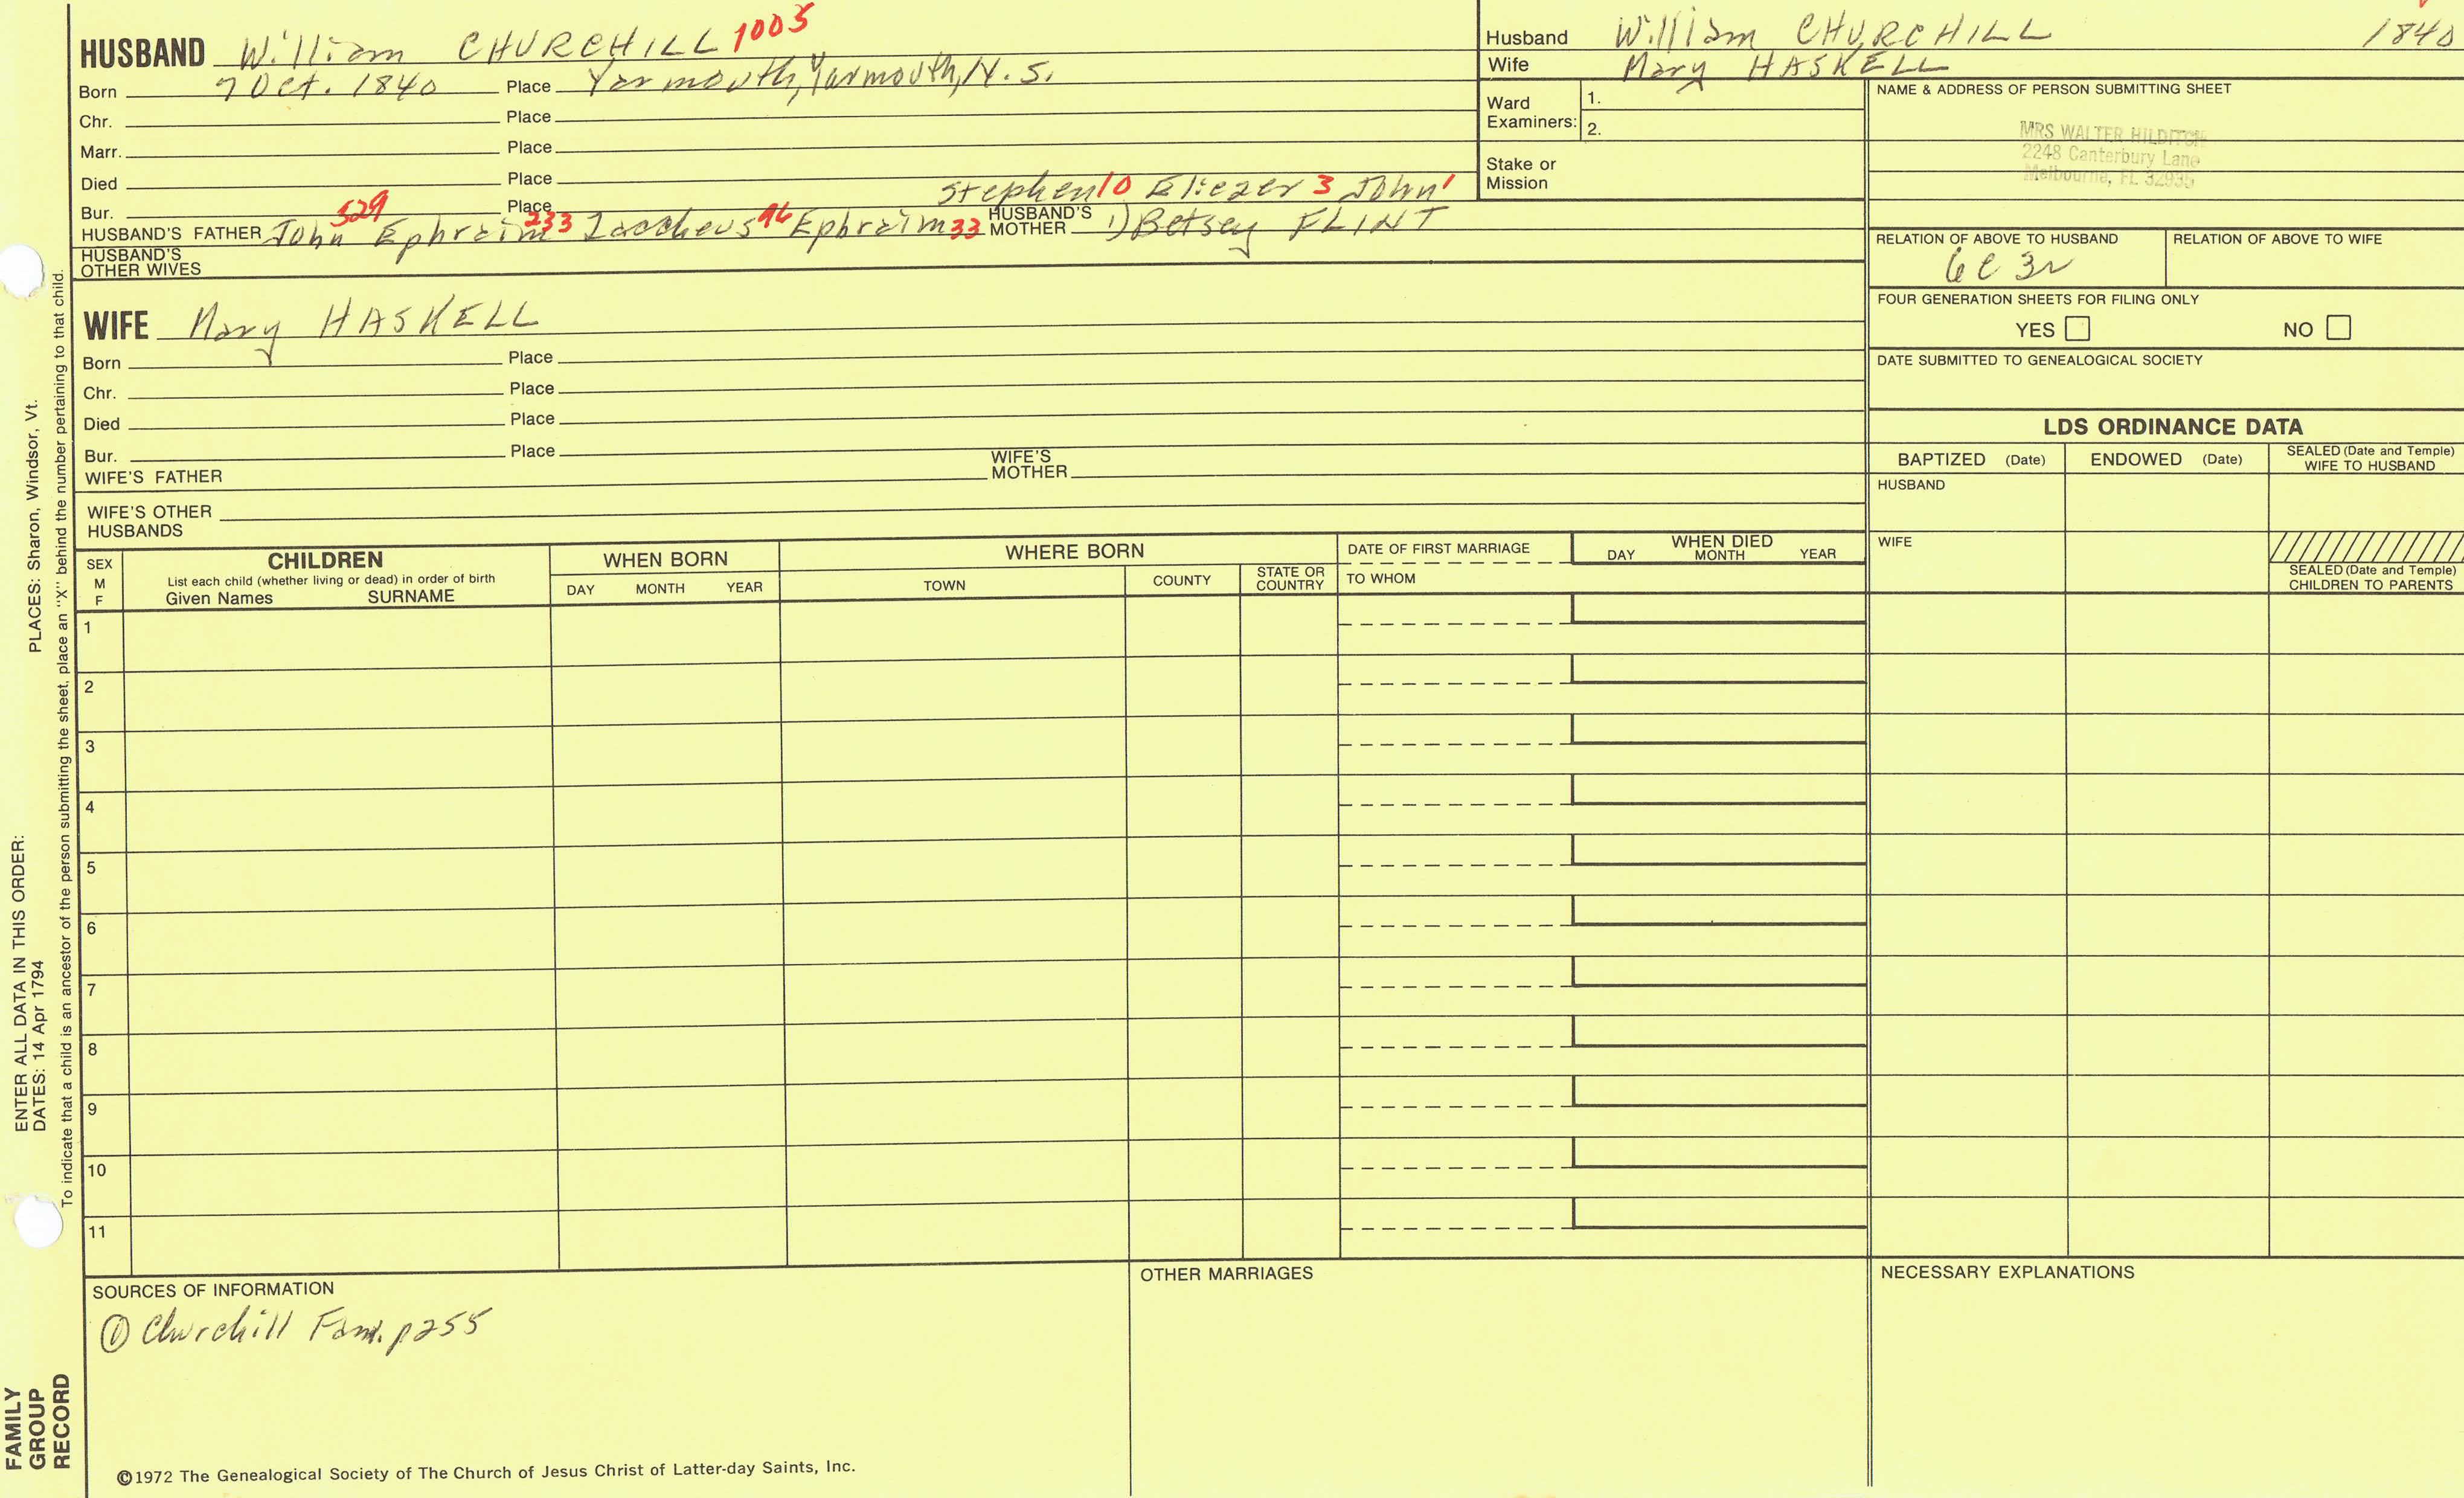 HUSBAND William CHURCHILL 1005
Born 7 Oct. 1840 Place Yarmouth, Yarmouth, N.S.
Chr. Place
Marr. Place
Died Place
Stephen 10 Eliezer 3 John 1
Bur. Place
HUSBAND'S FATHER John 529 Ephraim 233 Zaccheus 96 Ephraim 33 HUSBAND'S MOTHER 1) Betsey FLINT
HUSBAND'S OTHER WIVES
Husband William CHURCHILL 1840
Wife Mary HASKELL
Ward Examiners: 1.
2.
Stake or Mission
NAME & ADDRESS OF PERSON SUBMITTING SHEET
MRS WALTER HILDITCH
2248 Canterbury Lane
Melbourne, FL 32935
RELATION OF ABOVE TO HUSBAND RELATION OF ABOVE TO WIFE
6C 3r
FOUR GENERATION SHEETS FOR FILING ONLY
YES NO
DATE SUBMITTED TO GENEALOGICAL SOCIETY
WIFE Mary HASKELL
Born Place
Chr. Place
Died Place
Bur. Place
WIFE'S FATHER WIFE'S MOTHER
WIFE'S OTHER HUSBANDS
LDS ORDINANCE DATA
BAPTIZED (Date) ENDOWED (Date) SEALED (Date and Temple) WIFE TO HUSBAND
HUSBAND
WIFE
SEALED (Date and Temple) CHILDREN TO PARENTS
SEX M F
CHILDREN
List each child (whether living or dead) in order of birth
Given Names SURNAME
WHEN BORN
DAY MONTH YEAR
WHERE BORN
TOWN COUNTY STATE OR COUNTRY
DATE OF FIRST MARRIAGE
TO WHOM
WHEN DIED
DAY MONTH YEAR
1
2
3
4
5
6
7
8
9
10
11
SOURCES OF INFORMATION
① Churchill Fam. p255
OTHER MARRIAGES
NECESSARY EXPLANATIONS
©1972 The Genealogical Society of The Church of Jesus Christ of Latter-day Saints, Inc.
FAMILY GROUP RECORD
ENTER ALL DATA IN THIS ORDER:
DATES: 14 Apr 1794 PLACES: Sharon, Windsor, Vt.
To indicate that a child is an ancestor of the person submitting the sheet, place an "X" behind the number pertaining to that child.